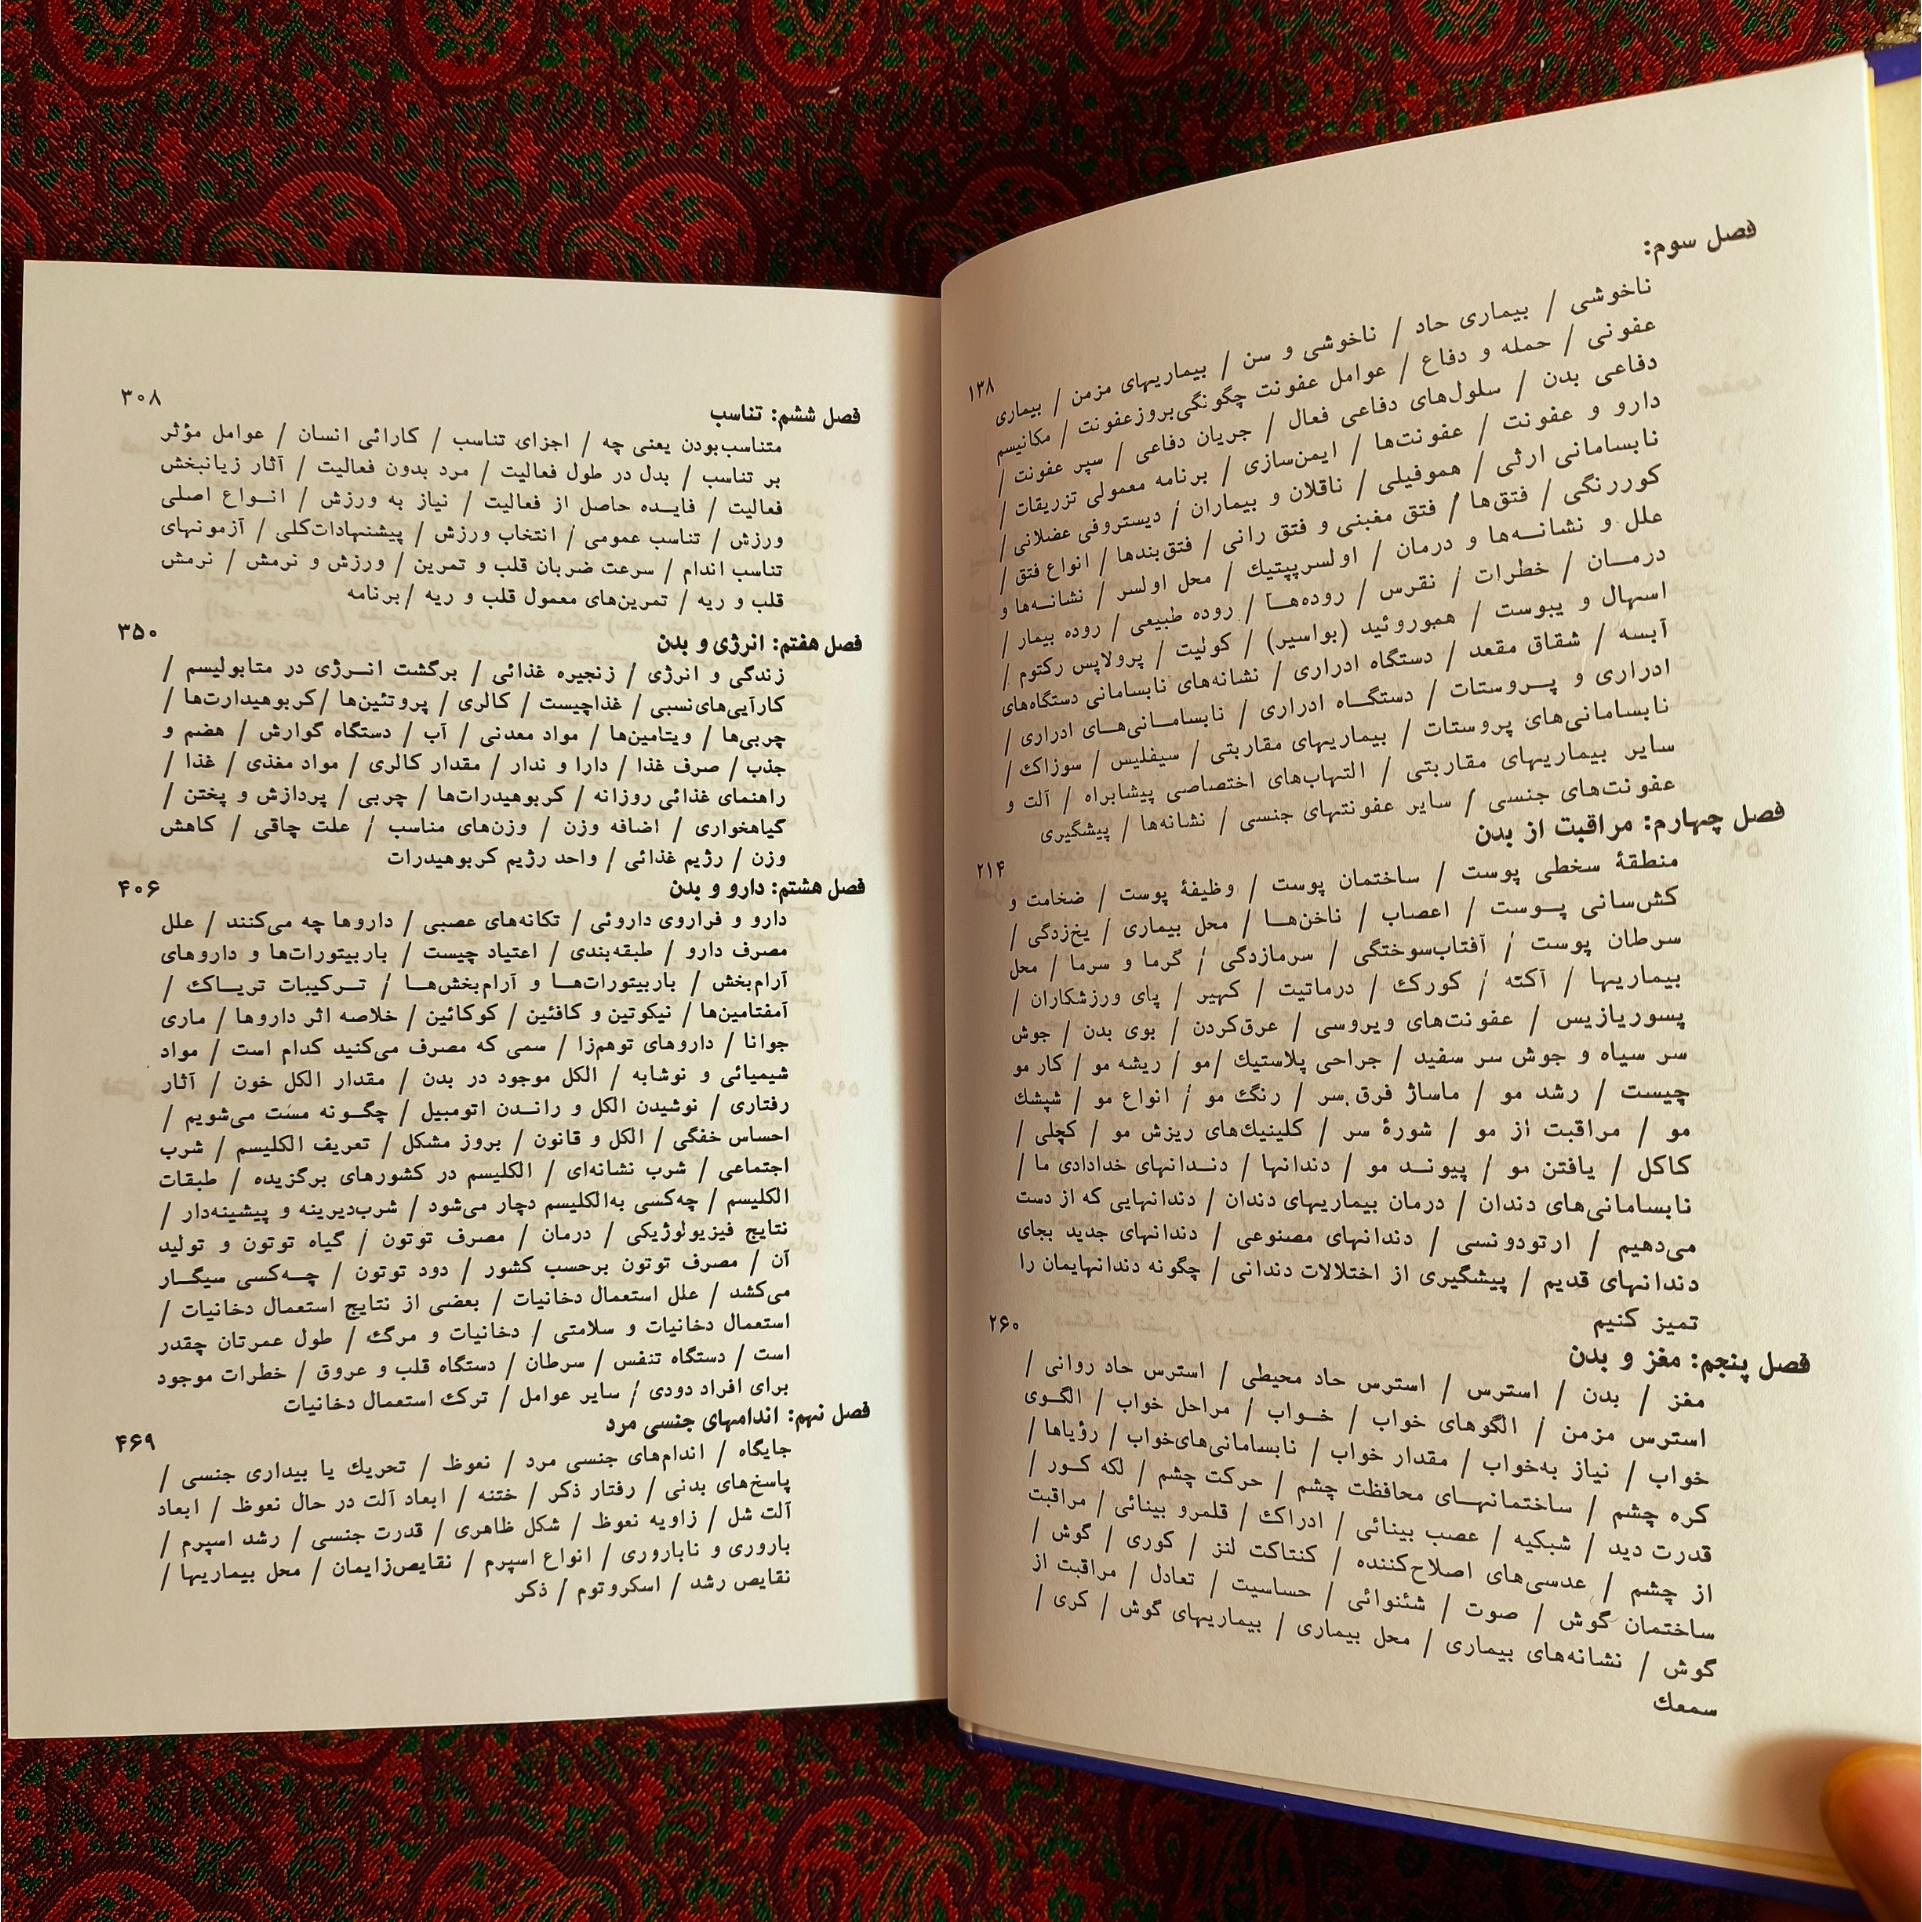 فصل سوم:
ناخوشی / بیماری حاد / ناخوشی و سن / بیماریهای مزمن / بیماری ۱۳۸
عفونی / حمله و دفاع / عوامل عفونت چگونگی‌بروزعفونت / مکانیسم
دفاعی بدن / سلول‌های دفاعی فعال / جریان دفاعی / سپر عفونت /
دارو و عفونت / عفونت‌ها / ایمن‌سازی / برنامه معمولی تزریقات /
نابسامانی ارثی / هموفیلی / ناقلان و بیماران / دیستروفی عضلانی /
کوررنگی / فتق‌ها / فتق مغبنی و فتق رانی / فتق‌بندها / انواع فتق /
علل و نشانه‌ها و درمان / اولسرپپتیك / محل اولسر / نشانه‌ها و
درمان / خطرات / نقرس / روده‌ها / روده طبیعی / روده بیمار /
اسهال و یبوست / هموروئید (بواسیر) / کولیت / پرولاپس رکتوم /
آبسه / شقاق مقعد / دستگاه ادراری / نشانه‌های نابسامانی دستگاه‌های
ادراری و پروستات / دستگاه ادراری / نابسامانی‌های ادراری /
نابسامانی‌های پروستات / بیماریهای مقاربتی / سیفلیس / سوزاك /
سایر بیماریهای مقاربتی / التهاب‌های اختصاصی پیشابراه / آلت و
عفونت‌های جنسی / سایر عفونتهای جنسی / نشانه‌ها / پیشگیری
فصل چهارم: مراقبت از بدن ۲۱۴
منطقهٔ سخطی پوست / ساختمان پوست / وظیفهٔ پوست / ضخامت و
کش‌سانی پوست / اعصاب / ناخن‌ها / محل بیماری / یخ‌زدگی /
سرطان پوست / آفتاب‌سوختگی / سرمازدگی / گرما و سرما / محل
بیماریها / آکنه / کورك / درماتیت / کهیر / پای ورزشکاران /
پسوریازیس / عفونت‌های ویروسی / عرق‌کردن / بوی بدن / جوش
سر سیاه و جوش سر سفید / جراحی پلاستیك /مو / ریشه مو / کار مو
چیست / رشد مو / ماساژ فرق سر / رنگ مو / انواع مو / شپشك
مو / مراقبت از مو / شورهٔ سر / کلینیك‌های ریزش مو / کچلی /
کاکل / یافتن مو / پیوند مو / دندانها / دندانهای خدادادی ما /
نابسامانی‌های دندان / درمان بیماریهای دندان / دندانهایی که از دست
می‌دهیم / ارتودونسی / دندانهای مصنوعی / دندانهای جدید بجای
دندانهای قدیم / پیشگیری از اختلالات دندانی / چگونه دندانهایمان را
تمیز کنیم
فصل پنجم: مغز و بدن ۲۶۰
مغز / بدن / استرس / استرس حاد محیطی / استرس حاد روانی /
استرس مزمن / الگوهای خواب / خواب / مراحل خواب / الگوی
خواب / نیاز به‌خواب / مقدار خواب / نابسامانی‌های‌خواب / رؤیاها /
کره چشم / ساختمانهای محافظت چشم / حرکت چشم / لکه کور /
قدرت دید / شبکیه / عصب بینائی / ادراك / قلمرو بینائی / مراقبت
از چشم / عدسی‌های اصلاح‌کننده / کنتاکت لنز / کوری / گوش /
ساختمان گوش / صوت / شنوائی / حساسیت / تعادل / مراقبت از
گوش / نشانه‌های بیماری / محل بیماری / بیماریهای گوش / کری /
سمعك
فصل ششم: تناسب ۳۰۸
متناسب‌بودن یعنی چه / اجزای تناسب / کارائی انسان / عوامل مؤثر
بر تناسب / بدل در طول فعالیت / مرد بدون فعالیت / آثار زیانبخش
فعالیت / فایده حاصل از فعالیت / نیاز به ورزش / انواع اصلی
ورزش / تناسب عمومی / انتخاب ورزش / پیشنهادات‌کلی / آزمونهای
تناسب اندام / سرعت ضربان قلب و تمرین / ورزش و نرمش / نرمش
قلب و ریه / تمرین‌های معمول قلب و ریه /برنامه
فصل هفتم: انرژی و بدن ۳۵۰
زندگی و انرژی / زنجیره غذائی / برگشت انرژی در متابولیسم /
کارآیی‌های‌نسبی / غذاچیست / کالری / پروتئین‌ها /کربوهیدارت‌ها /
چربی‌ها / ویتامین‌ها / مواد معدنی / آب / دستگاه گوارش / هضم و
جذب / صرف غذا / دارا و ندار / مقدار کالری / مواد مغذی / غذا /
راهنمای غذائی روزانه / کربوهیدرات‌ها / چربی / پردازش و پختن /
گیاهخواری / اضافه وزن / وزن‌های مناسب / علت چاقی / کاهش
وزن / رژیم غذائی / واحد رژیم کربوهیدرات
فصل هشتم: دارو و بدن ۴۰۶
دارو و فراروی داروئی / تکانه‌های عصبی / داروها چه می‌کنند / علل
مصرف دارو / طبقه‌بندی / اعتیاد چیست / باربیتورات‌ها و داروهای
آرام‌بخش / باربیتورات‌ها و آرام‌بخش‌ها / ترکیبات تریاك /
آمفتامین‌ها / نیکوتین و کافئین / کوکائین / خلاصه اثر داروها / ماری
جوانا / داروهای توهم‌زا / سمی که مصرف می‌کنید کدام است / مواد
شیمیائی و نوشابه / الکل موجود در بدن / مقدار الکل خون / آثار
رفتاری / نوشیدن الکل و راندن اتومبیل / چگونه مست می‌شویم /
احساس خفگی / الکل و قانون / بروز مشکل / تعریف الکلیسم / شرب
اجتماعی / شرب نشانه‌ای / الکلیسم در کشورهای برگزیده / طبقات
الکلیسم / چه‌کسی به‌الکلیسم دچار می‌شود / شرب‌دیرینه و پیشینه‌دار /
نتایج فیزیولوژیکی / درمان / مصرف توتون / گیاه توتون و تولید
آن / مصرف توتون برحسب کشور / دود توتون / چه‌کسی سیگار
می‌کشد / علل استعمال دخانیات / بعضی از نتایج استعمال دخانیات /
استعمال دخانیات و سلامتی / دخانیات و مرگ / طول عمرتان چقدر
است / دستگاه تنفس / سرطان / دستگاه قلب و عروق / خطرات موجود
برای افراد دودی / سایر عوامل / ترك استعمال دخانیات
فصل نهم: اندامهای جنسی مرد ۴۶۹
جایگاه / اندام‌های جنسی مرد / نعوظ / تحریك یا بیداری جنسی /
پاسخ‌های بدنی / رفتار ذکر / ختنه / ابعاد آلت در حال نعوظ / ابعاد
آلت شل / زاویه نعوظ / شکل ظاهری / قدرت جنسی / رشد اسپرم /
باروری و ناباروری / انواع اسپرم / نقایص‌زایمان / محل بیماریها /
نقایص رشد / اسکروتوم / ذکر